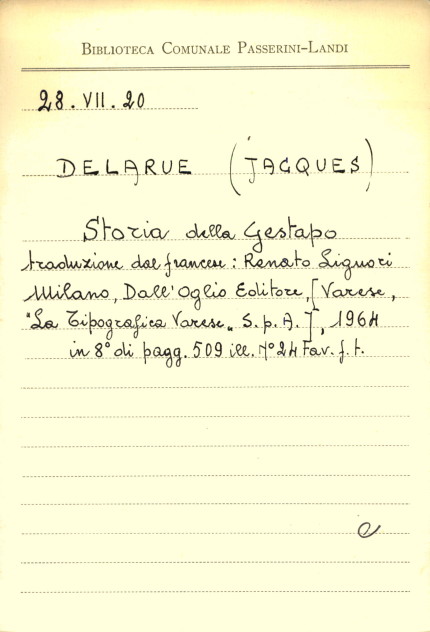 BIBLIOTECA COMUNALE PASSERINI-LANDI
28.VII.20
DELARUE (JACQUES)
Storia della Gestapo
traduzione dal francese: Renato Liguori
Milano, Dall'Oglio Editore, [Varese,
"La Tipografica Varese„ S.p.A.], 1964
in 8° di pagg. 509 ill. n° 24 Tav. f. t.
e